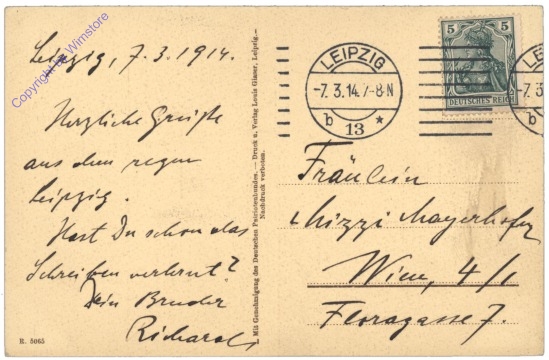 Leipzig, 7.3.1914.
Herzliche Grüße
aus dem regen
Leipzig.
Hast Du schon das
Schreiben verlernt?
Dein Bruder
Richard
R. 5065
Mit Genehmigung des Deutschen Patriotenbundes. — Druck u. Verlag Louis Glaser, Leipzig. —
Nachdruck verboten.
LEIPZIG
-7.3.14.7-8N
b 13 *
5 5
DEUTSCHES REICH
-7.3
b
Fräulein
Mizzi Mayerhofer
Wien, 4/1
Floragasse 7.
Copyright by Wimstore